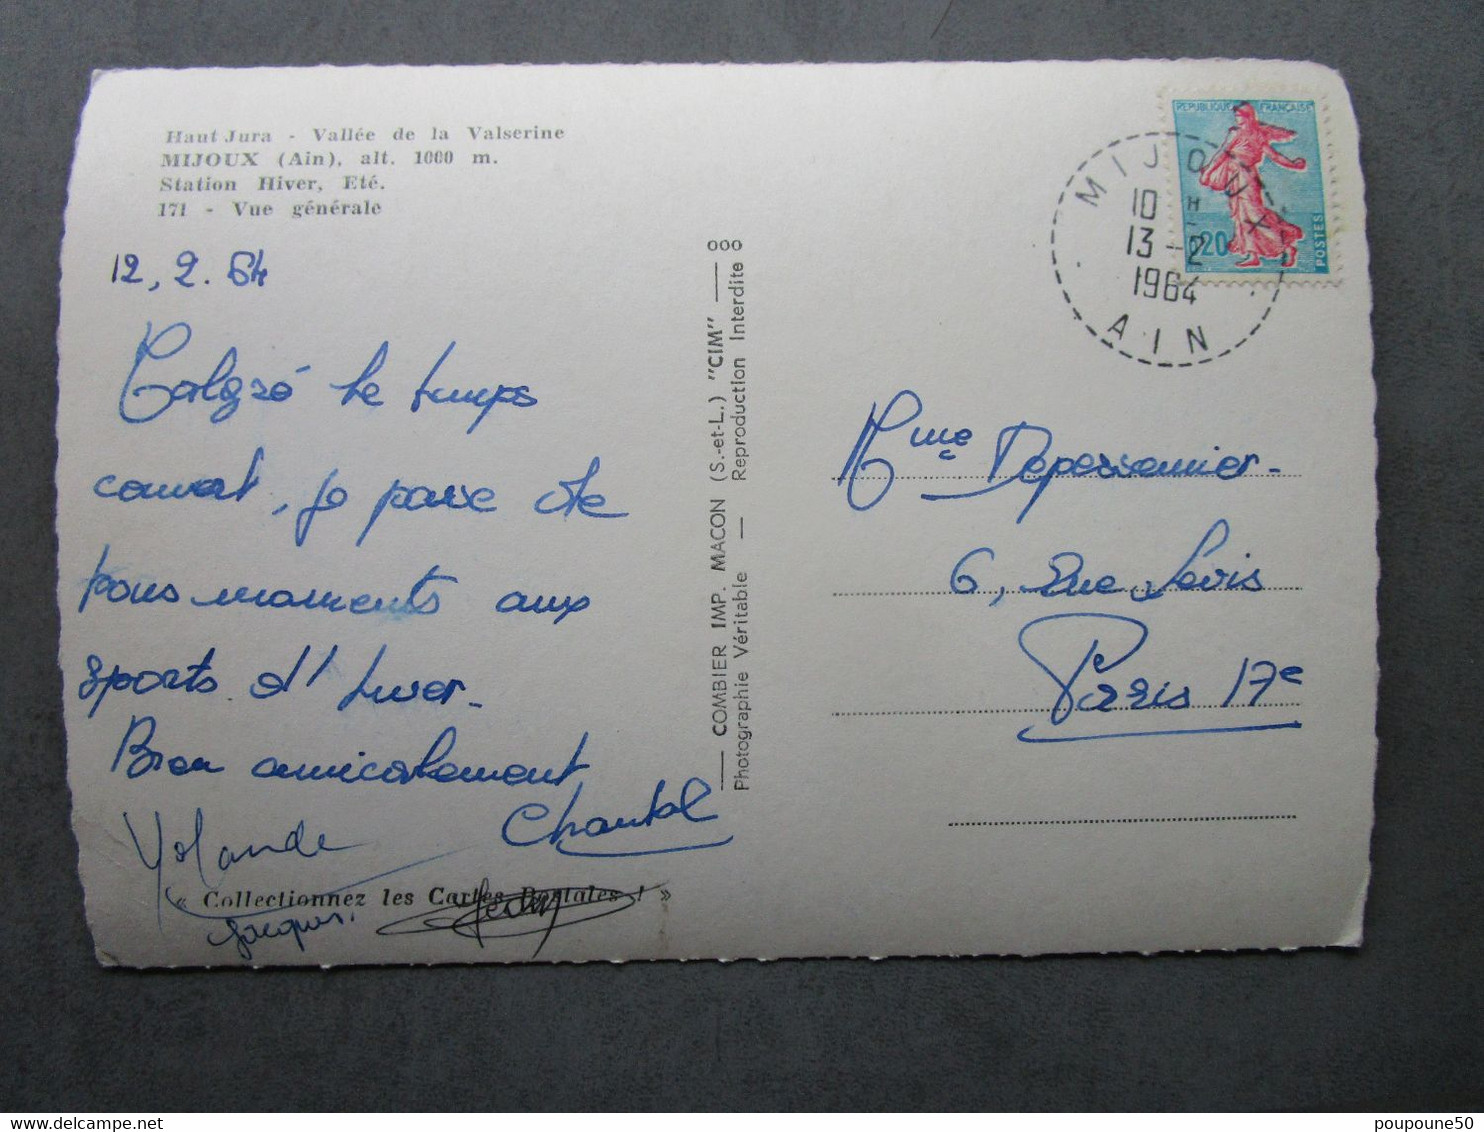 Haut Jura - Vallée de la Valserine
MIJOUX (Ain), alt. 1000 m.
Station Hiver, Eté.
171 - Vue générale
12, 2. 64
Malgré le temps
couvert, je passe de
bons moments aux
sports d'hiver.
Bien amicalement
Yolande Chantal
« Collectionnez les Cartes Postales ! »
Jacques.
COMBIER IMP. MACON (S.-et-L.) "CIM" — ooo
Photographie Véritable — Reproduction Interdite
REPUBLIQUE FRANÇAISE
0,20
POSTES
MIJOUX
10 H
13 - 2
1964
AIN
Mme Depersenier.
6, Rue Levis
Paris 17e
poupoune50